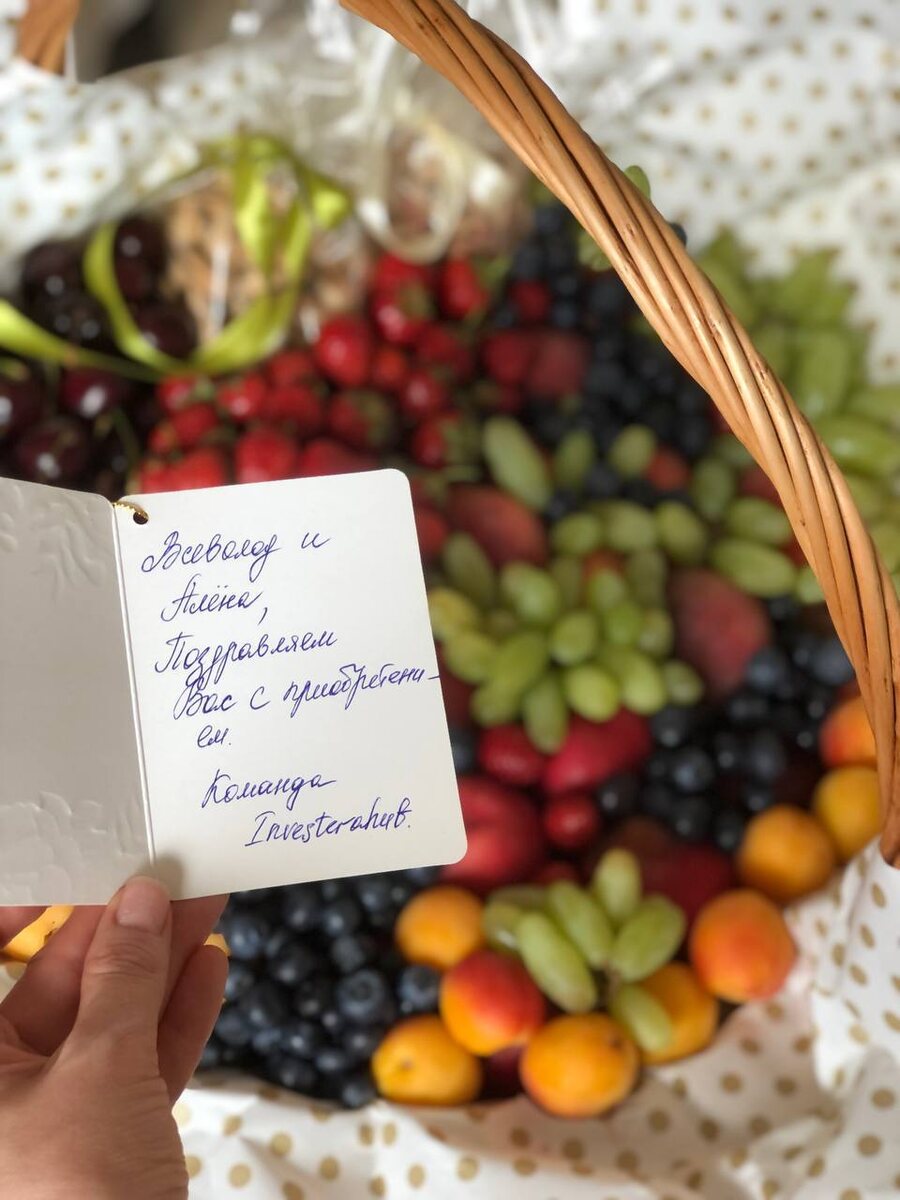 Всеволод и
Алёна,
Поздравляем
Вас с приобретени-
ем.
Команда
Investerahub.